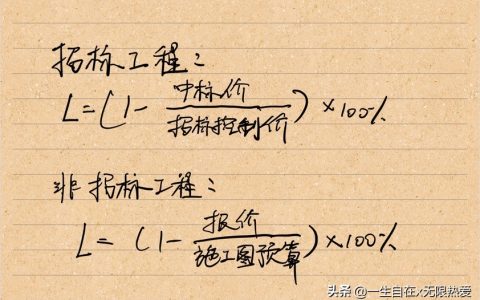 招标工程：
L=(1-中标价/招标控制价)×100%
非招标工程：
L=(1-报价/施工图预算)×100%
头条 @一生自在x无限热爱